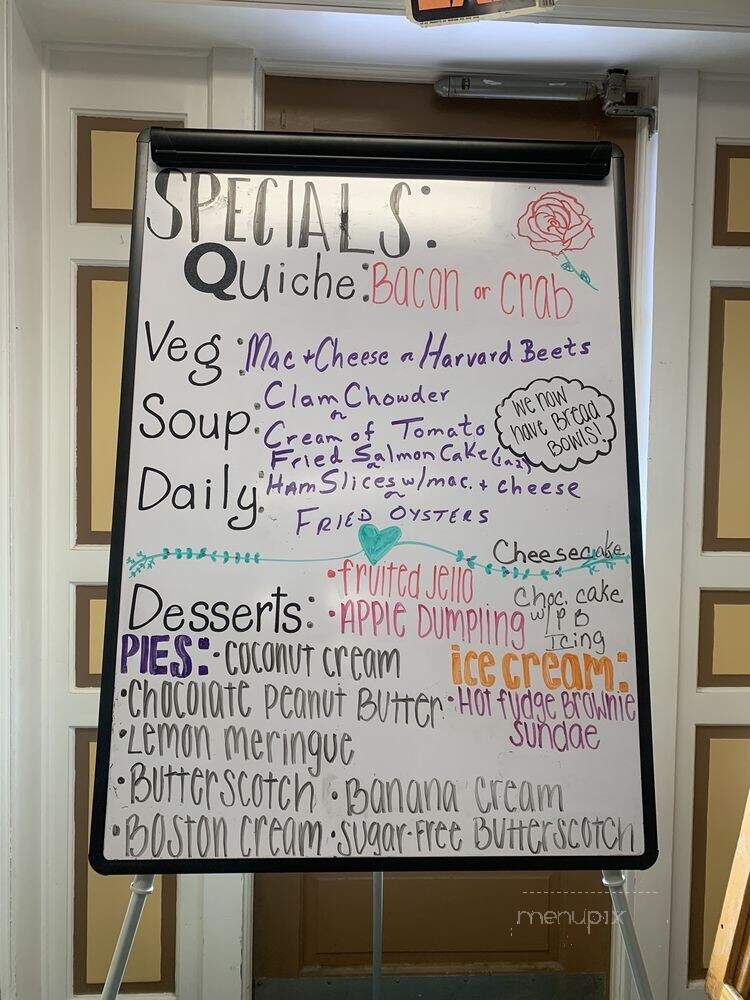 SPECIALS:
Quiche: Bacon or Crab
Veg: Mac + Cheese or Harvard Beets
Soup: Clam Chowder
or
Cream of Tomato
We now have Bread Bowls!
Daily: Fried Salmon Cake (1 or 2)
or
Ham Slices w/mac. + cheese
or
FRIED OYSTERS
Cheesecake
Desserts: • fruited Jello
• APPLE DUMPLING
Choc. cake
w/ P B
Icing
PIES: • Coconut cream
• Chocolate Peanut Butter
• Lemon meringue
• Butterscotch • Banana cream
• Boston cream • Sugar-Free Butterscotch
ice cream:
• Hot fudge Brownie
Sundae
menupix